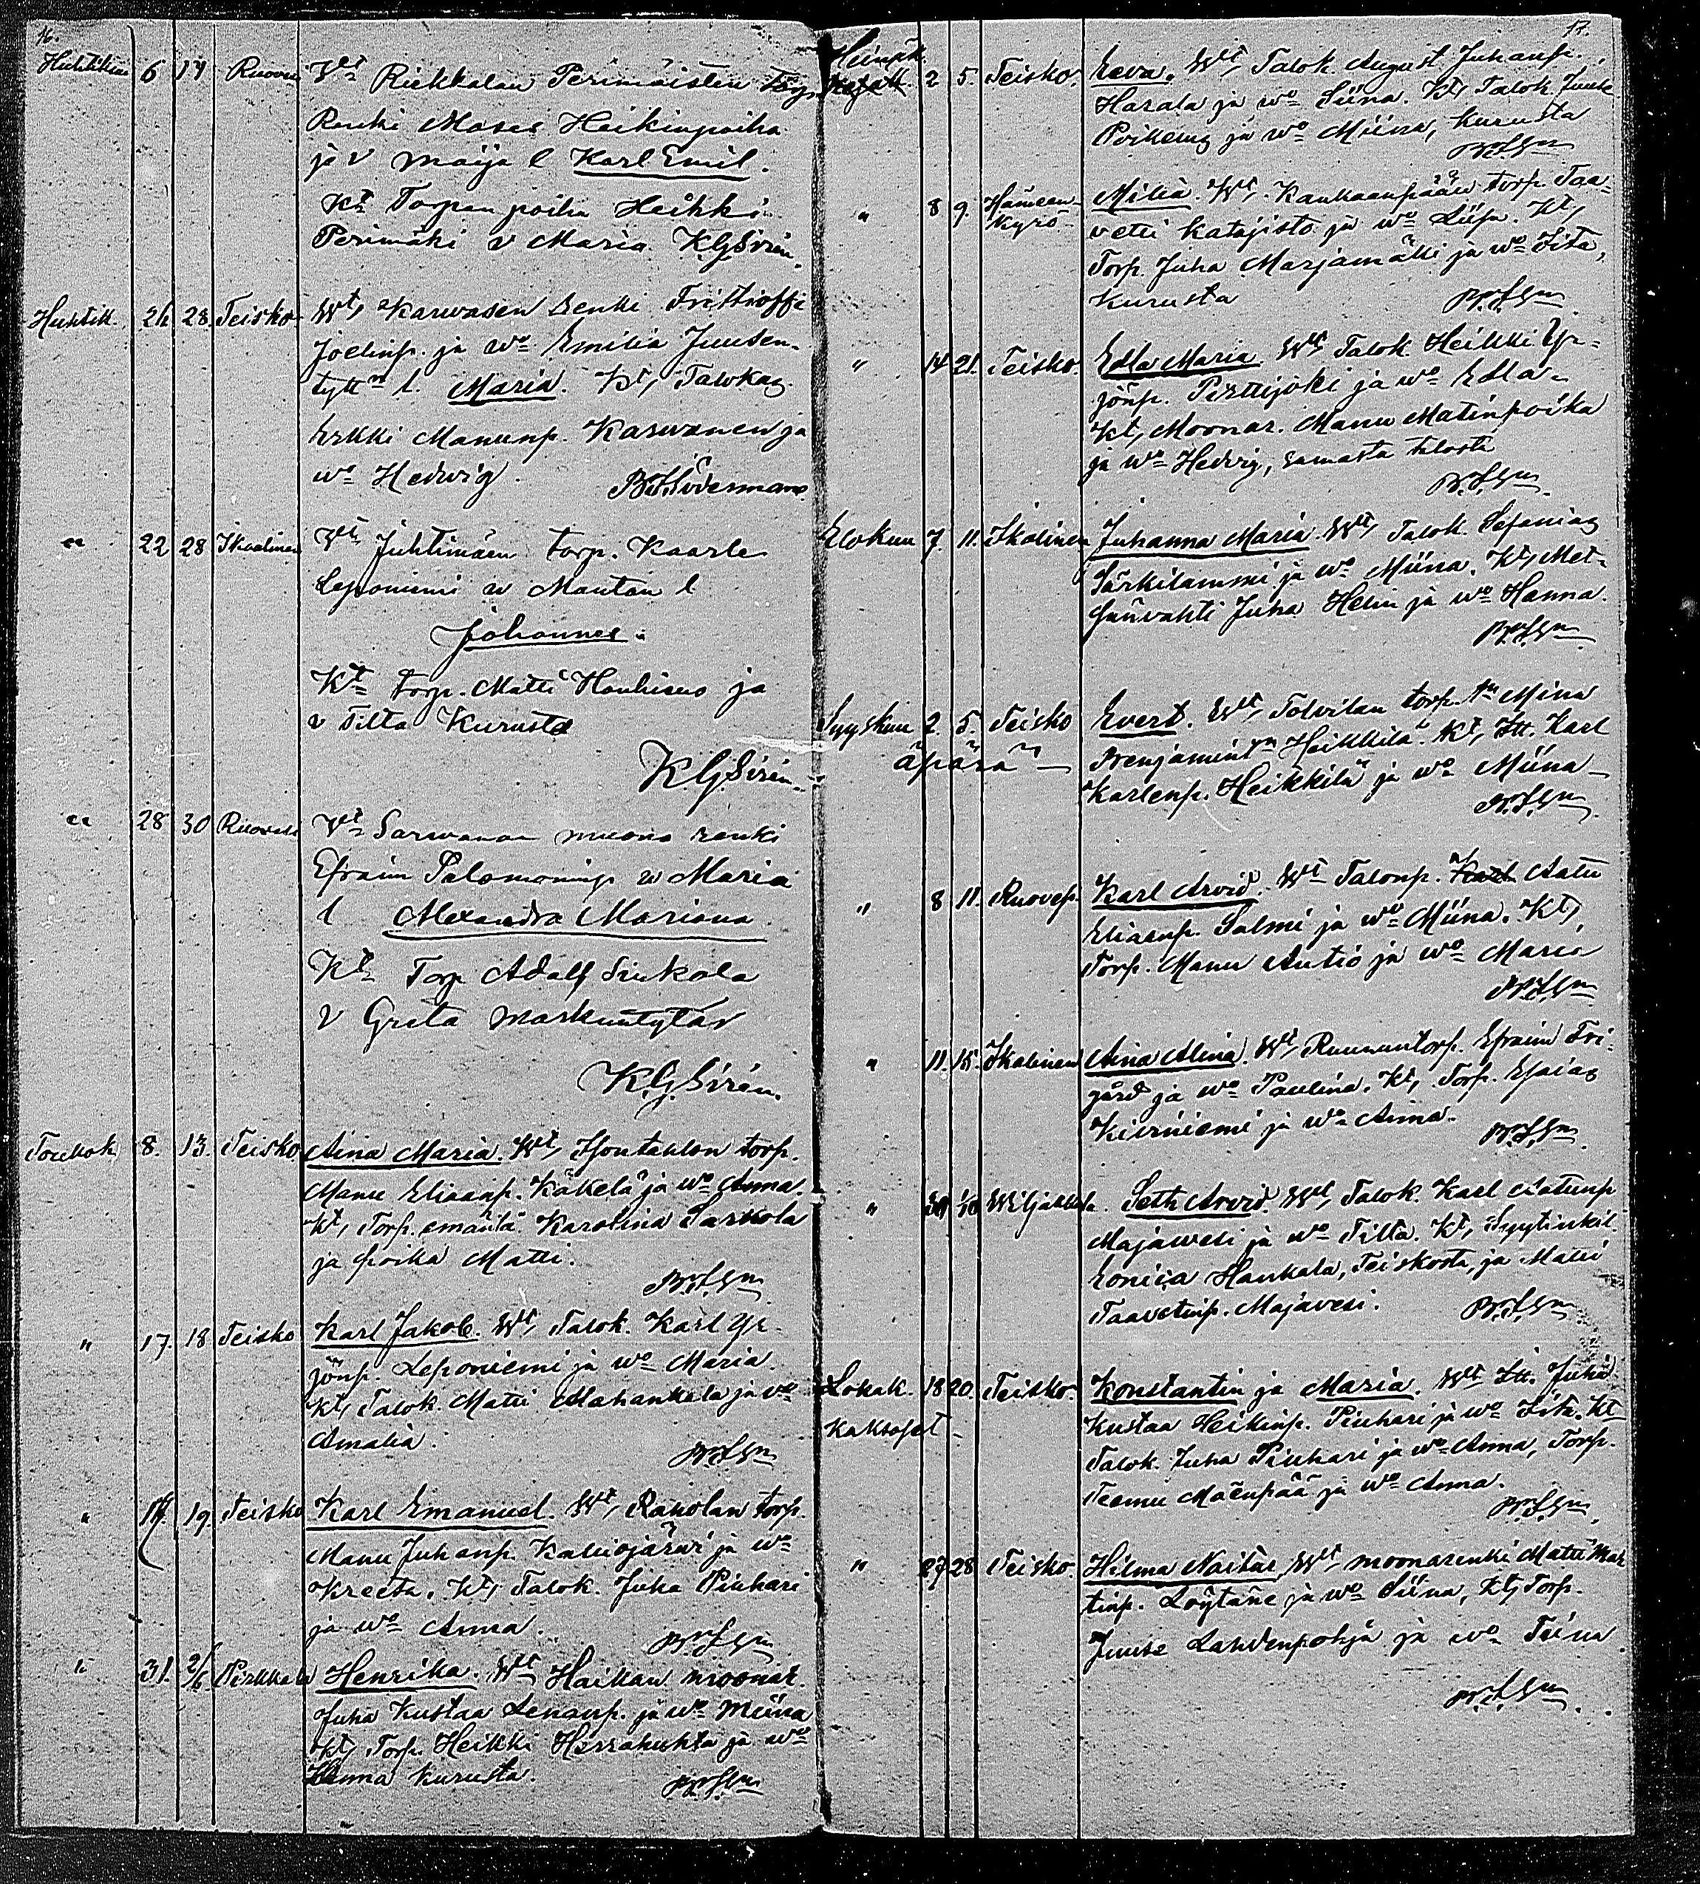 16.
Huhtikuu 6 17 Ruovesi Vt Riekkalan Perimäisten
Renki Moses Heikinpoika
ja v Maija l Karl Emil.
Kt Torpan poika Heikki
Perimäki v Maria KGSirén.
Huhtik. 26 28 Teisko Wt, Karwasen Renki
Joelinp. ja wo Emilia Juusen-
tytt l. Maria. Kt, Talokas
Erkki Manunp. Karwanen ja
wo Hedwig.
" 22 28 Ikaalinen Vt Juhtimäen torp. Kaarle
Leponiemi w Mantan l
Johannes.
Kt torp. Matti Houhisuo ja
v Tilta Kurusta
KGSirén
" 28 30 Ruovesi Vt muona renki
Efraim w Maria
l Alexandra Mariana
Kt Torp Adolf Sinkola
v Greta Markuntytär
K.G.Sirén.
Toukok. 8. 13. Teisko Aina Maria. Wt, torp.
Manu Eliaanp. Käkelä ja wo Anna.
Kt, Torp. emäntä Karolina Sarkola
ja poika Matti.
" 17. 18 Teisko Karl Jakob. Wt, Talok. Karl Yr-
jönp. Leponiemi ja wo Maria
Kt, Talok. Matti Mahankala ja wo
Amalia.
" 19 Teisko Karl Emanuel. Wt, Raholan torp.
Manu Juhanp. Kaleojärwi ja wo
Kreeta. Kt, Talok. Juha Piuhari
ja wo Anna.
" 31. 2/6 Pirkkala Henrika. Wt Haikan moonar.
Juha Kustaa ja wo Miina
Kt, Torp. Heikki Herrakuhta ja wo
Hanna Kurusta.
17.
Heinäk. 2 5. Teisko. Eeva. Wt, Talok. August Juhanp.
Harala ja wo Siina. Kt, Talok. Juuse
ja wo Miina, Kurusta
" 8 9. Hämeen- Milia. Wt. Kankaanpään torp. Taa-
Kyrö vetti Katajisto ja wo Liisa. Kt,
Torp. Juha Marjamäki ja wo Fita,
Kurusta
" 14 21. Teisko. Edla Maria. Wt, Talok. Heikki Yr-
jönp. Perttijoki ja wo Edla.
Kt, Moonar. Manu Matinpoika
ja wo Hedvig, samasta talosta
Elokuu 7. 11. Ikalinen Juhanna Maria. Wt, Talok. Sefanias
Särkilammi ja wo Miina. Kt, Met-
sänvahti Juha Helin ja wo Hanna.
Syyskuu 2. 5. Teisko Evert. Wt, Tolvilan torp. Miina
äpärä Heikkilä. Kt, Itt. Karl
Karlenp. Heikkilä ja wo Miina
" 8 11. Ruoves. Karl Arvid. Wt Talonp. Aatu
Eliaenp. Salmi ja wo Miina. Kt,
Torp. Manu Autio ja wo Maria
" 11. 15. Ikalinen Aina Alina. Wt, Ruunun torp. Efraim Fri-
gård ja wo Paulina. Kt, Torp. Esaias
Kierniemi ja wo Anna.
" Wiljakkala. Seth Arvid. Wt, Talok. Karl Aatunp
Majawesi ja wo Tilta. Kt, Syytinkil.
Hankala, Teiskosta, ja Matti
Taavetinp. Majavesi.
Lokak. 18 20. Teisko. Konstantin ja Maria. Wt Itt. Juha
Kaksoset Kustaa Heikinp. Piuhari ja wo Fita. Kt
Talok. Juha Piuhari ja wo Anna, Torp.
Teemu Mäenpää ja wo Anna.
" 27 28 Teisko. Hilma Naitar. Wt, moonarenki Matti Mar
tinp. Löytäne ja wo Siina, Kt, Torp.
Juuse Lahdenpohja ja wo Teina.